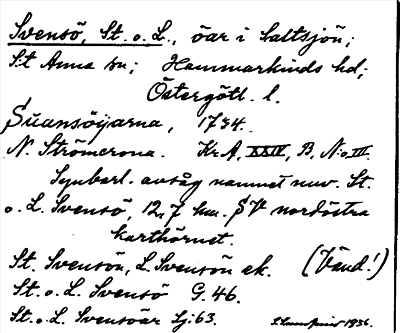 Svensö, St. o. L., öar i Saltsjön;
St Anna sn; Hammarkinds hd;
Östergötl. l.
Suansöijarna, 1734.
N. Strömcrona. Kr.A, XXIV, B, N:o III.
Synbarl. avsåg namnet nuv. St.
o. L. Svensö, 12,7 km. SV nordöstra
karthörnet.
St. Svensön, L. Svensön ek. (Vänd!)
St. o. L. Svensö G. 46.
St. o. L. Svensöar Sj: 63.
1936.